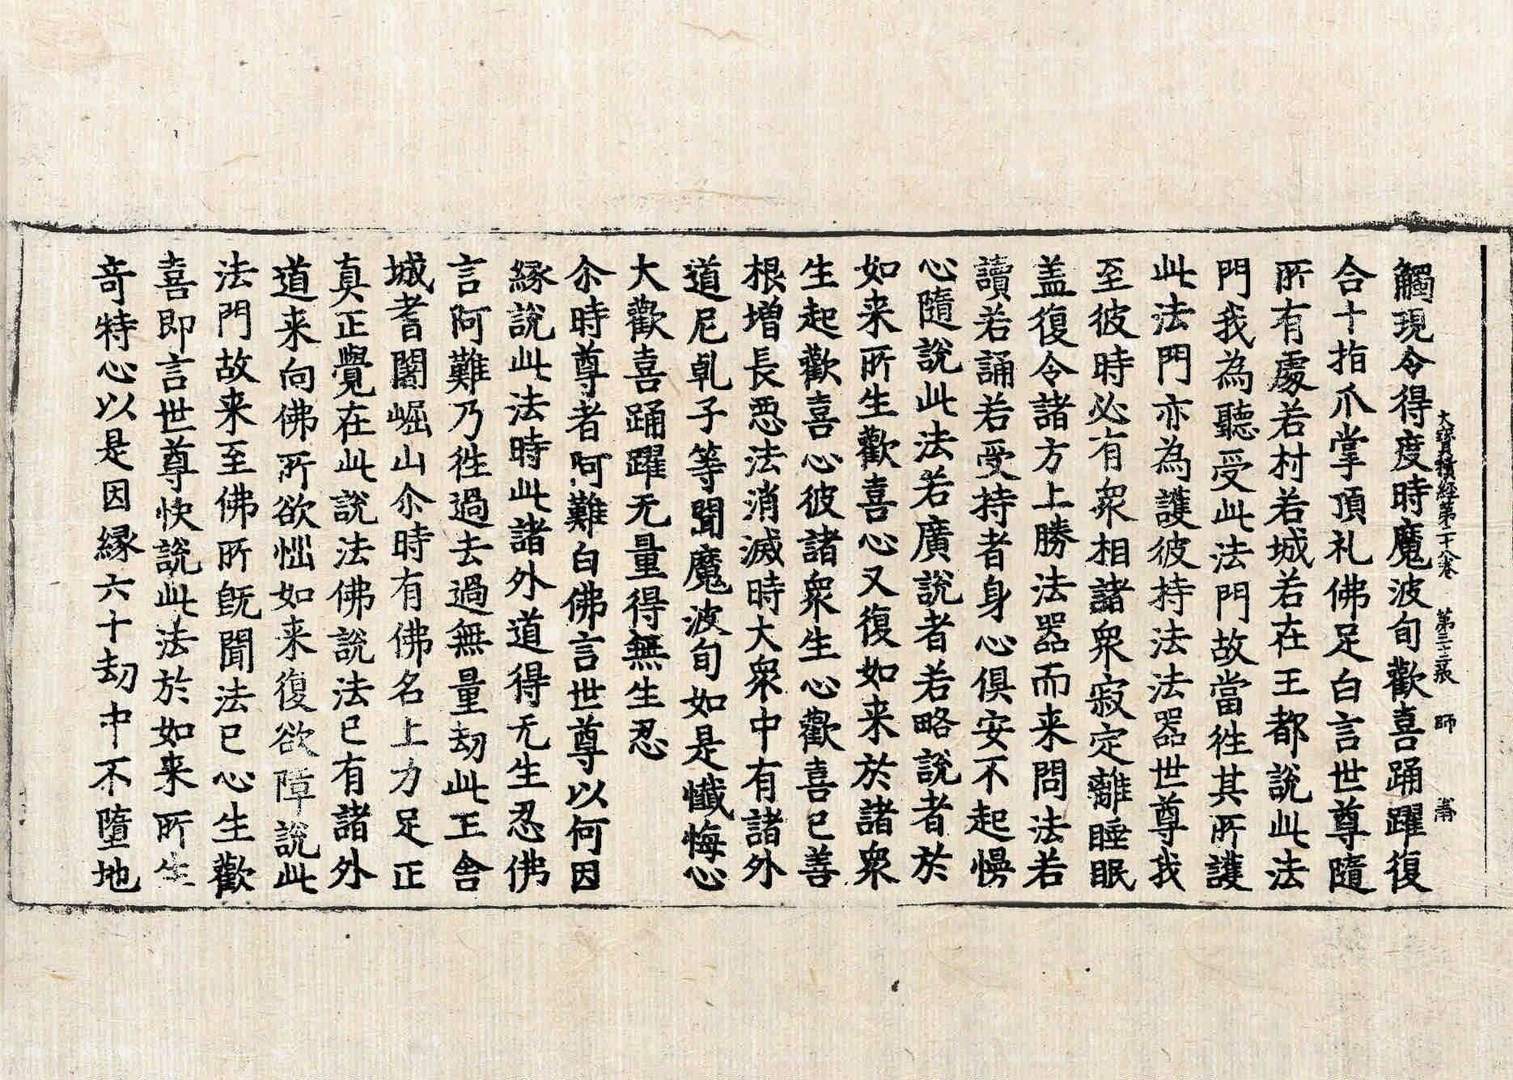 大寳積經第二十八卷 第三十二張 師
觸現令得度時魔波旬歡喜踊躍復
合十指爪掌頂礼佛足白言世尊隨
所有處若村若城若在王都說此法
門我為聽受此法門故當徃其所護
此法門亦為護彼持法法器世尊我
至彼時必有衆相諸衆寂定離睡眠
盖復令諸方上勝法器而来問法若
讀若誦若受持者身心俱安不起慢
心隨說此法若廣說者若略說者於
如来所生歡喜心又復如来於諸衆
生起歡喜心彼諸衆生心歡喜已善
根增長惡法消滅時大衆中有諸外
道尼乹子等聞魔波旬如是懺悔心
大歡喜踊躍无量得無生忍
尒時尊者阿難白佛言世尊以何因
縁說此法時此諸外道得无生忍佛
言阿難乃徃過去過無量劫此王舍
城耆闍崛山尒時有佛名上力足正
真正覺在此說法佛說法已有諸外
道来向佛所欲惱如来復欲障說此
法門故来至佛所旣聞法已心生歡
喜即言世尊快說此法於如来所生
竒特心以是因縁六十劫中不墮地